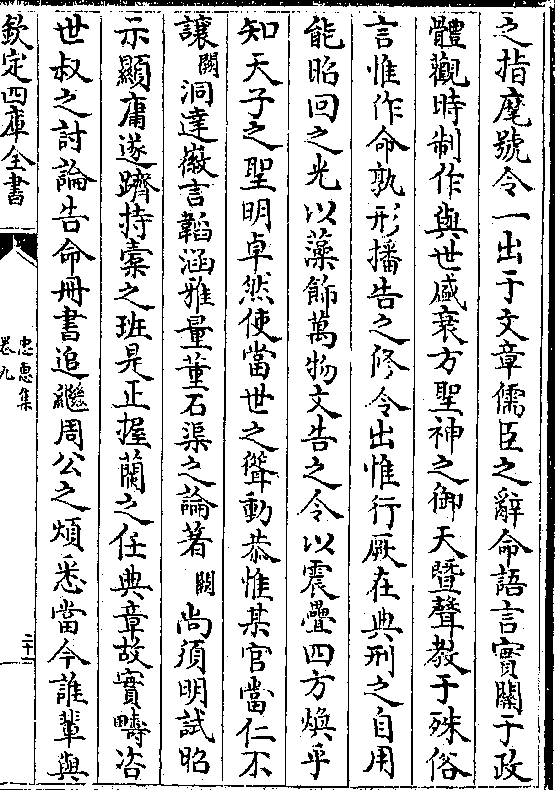 之指麾號令一出于文章儒臣之辭命語言實關于政
體觀時制作與世盛衰方聖神之御天暨聲教于殊俗
言惟作命孰形播告之修令出惟行厥在典刑之自用
能昭回之光以藻飾萬物文告之令以震疊四方煥乎
知天子之聖明卓然使當世之聳動恭惟某官當仁不
讓闕洞達徽言韜涵雅量董石渠之論著闕尚須明試昭
示顯庸遂躋持橐之班是正握蘭之任典章故實疇咨
世叔之討論告命冊書追繼周公之煩悉當今誰輩與
欽定四庫全書
忠惠集
卷九
二十一